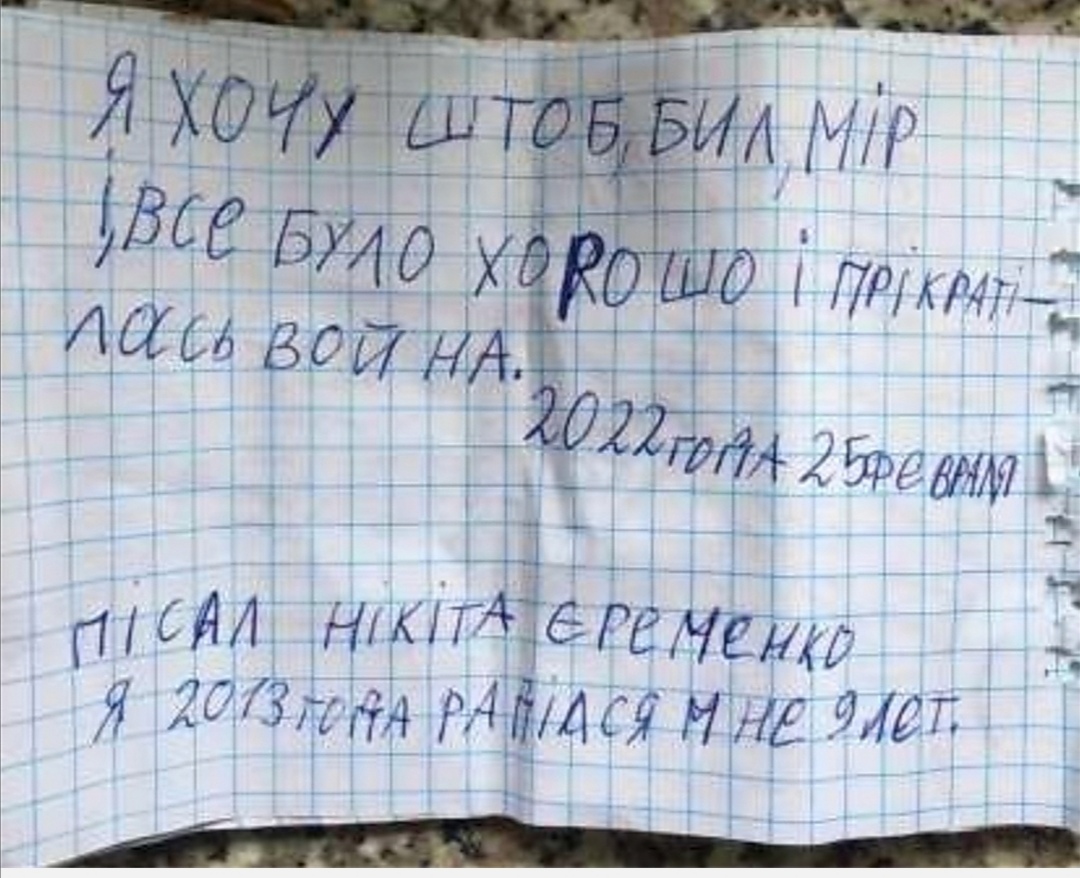 Я ХОЧУ ШТОБ, БИЛ, МіР
І, ВСЕ БУЛО ХОRОШО і ПРіКРАТі-
ЛАСЬ ВОЙНА.
2022 ГОДА 25 ФЕВРАЛЯ
ПіСАЛ НіКіТА ЄРЕМЕНКО
Я 2013 ГОДА РАДіЛСЯ МНЕ 9 ЛЕТ.